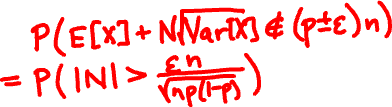 P(E[X] + N√Var[X] ∉ (p±ε)n)
= P(|N| > εn/√np(1-p))